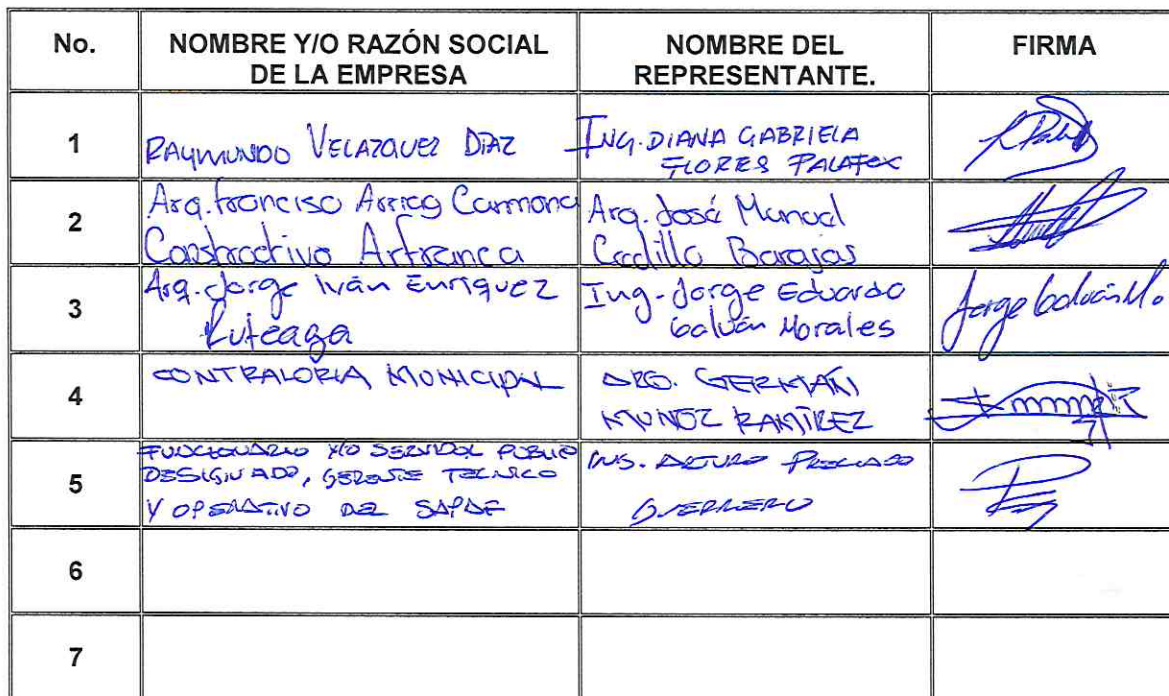 No. NOMBRE Y/O RAZÓN SOCIAL DE LA EMPRESA NOMBRE DEL REPRESENTANTE. FIRMA
1 RAYMUNDO VELAZQUEZ DIAZ ING. DIANA GABRIELA
FLORES PALAFOX
2 Arq. Francisco Arriag Carmona Arq. José Manuel
Constructivo Arfranca Cedillo Barajas
3 Arq. Jorge Iván Enriquez Ing. Jorge Eduardo
Galván Morales
Jorge Galván Mo
4 CONTRALORIA MUNICIPAL ARQ. GERMÁN
MUÑOZ RAMÍREZ
5 FUNCIONARIO Y/O SERVIDOR PUBLICO
DESIGNADO, GERENTE TECNICO
Y OPERATIVO DEL SAPAF
ING. ARTURO PRECIADO
GUERRERO
6
7